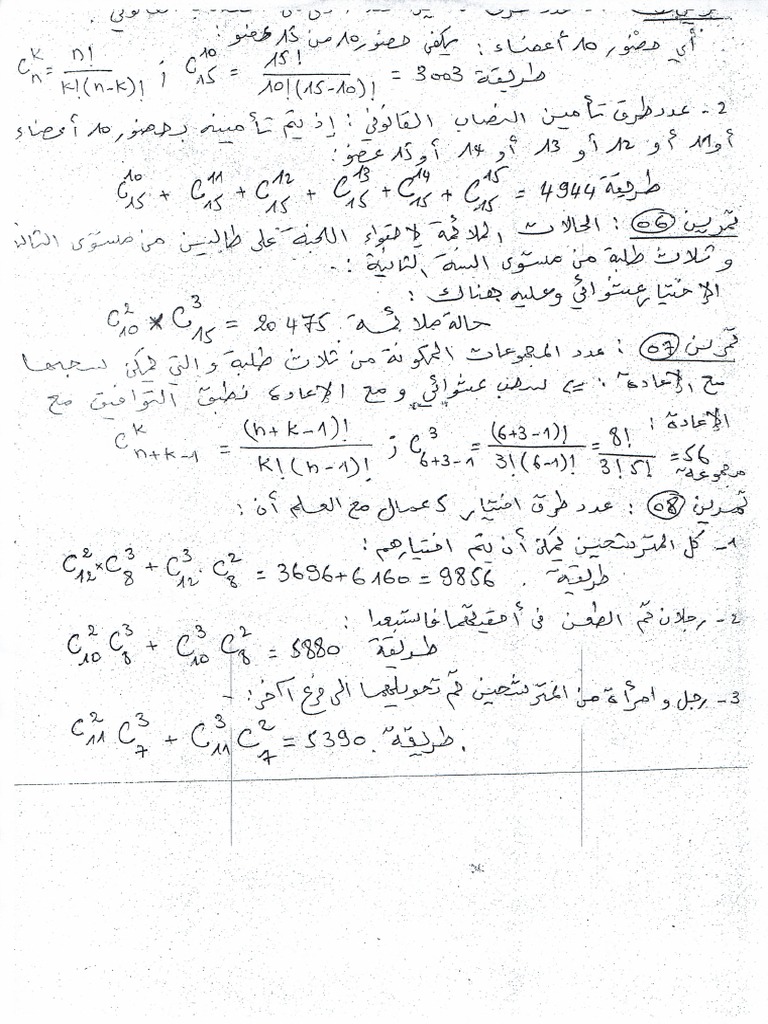 عدد طرق
أي حضور 10 أعضاء : يكفي حضور 10 من 15 عضو :
C_n^k = n! / k!(n-k)! ; C_15^10 = 15! / 10!(15-10)! = 3003 طريقة
2- عدد طرق تأمين النصاب القانوني : إذ يتم تأمينه بحضور 10 أعضاء
أو 11 أو 12 أو 13 أو 14 أو 15 عضو :
C_15^10 + C_15^11 + C_15^12 + C_15^13 + C_15^14 + C_15^15 = 4944 طريقة
تمرين 06 : الحالات الملائمة لاحتواء اللجنة على طالبين من مستوى الثالثة
و ثلاث طلبة من مستوى السنة الثانية :
الإختيار عشوائي وعليه هناك :
C_10^2 × C_15^3 = 20475 حالة ملائمة.
تمرين 07 : عدد المجموعات المكونة من ثلاث طلبة والتي يمكن سحبها
مع الإعادة : السحب عشوائي ومع الإعادة نطبق التوافيق مع
الإعادة :
C_{n+k-1}^k = (n+k-1)! / k!(n-1)! ; C_{6+3-1}^3 = (6+3-1)! / 3!(6-1)! = 8! / 3!5! = 56 مجموعة
تمرين 08 : عدد طرق اختيار 5 عمال مع العلم أن :
1- كل المترشحين يمكن أن يتم اختيارهم :
C_12^2 × C_8^3 + C_12^3 . C_8^2 = 3696 + 6160 = 9856 طريقة.
2- رجلان تم الطعن في أحقيتهما فاستبعدا :
C_10^2 C_8^3 + C_10^3 C_8^2 = 5880 طريقة
3- رجل و امرأة من المترشحين تم تحويلهما الى فرع آخر : -
C_11^2 C_7^3 + C_11^3 C_7^2 = 5390 طريقة.